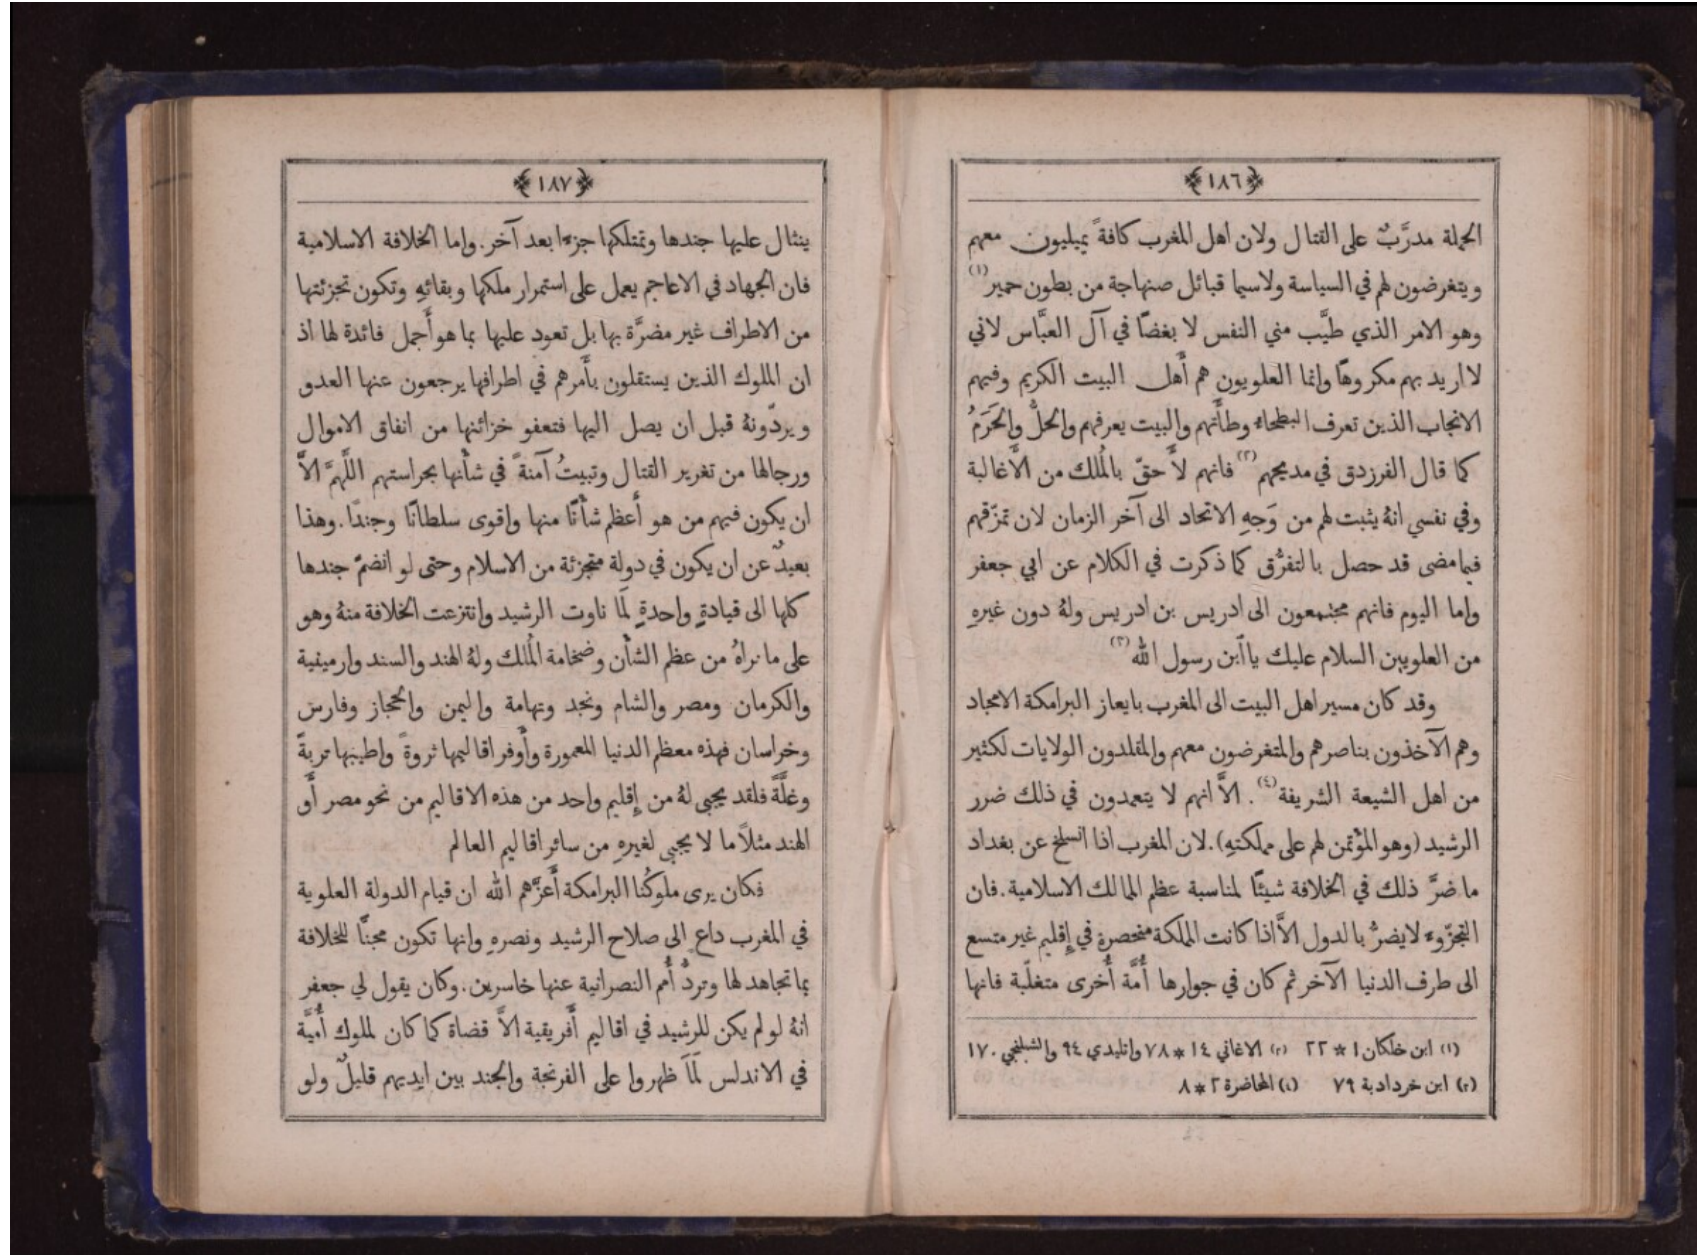 ﴿١٨٦﴾
الحملة مدرَّبٌ على القتال ولان اهل المغرب كافةً يميليون معهم
ويتغرضون لهم في السياسة ولاسيما قبائل صنهاجة من بطون حمير(١)
وهو الامر الذي طيَّب مني النفس لا بغضًا في آل العبَّاس لاني
لا اريد بهم مكروهًا وانما العلويون هم أَهل البيت الكريم وفيهم
الانجاب الذين تعرف البطحاءُ وطأَتهم والبيت يعرفهم والحلُّ والحَرَمُ
كما قال الفرزدق في مديحهم(٢) فانهم لأَحقّ بالمُلك من الأَغالبة
وفي نفسي انهُ يثبت لهم من وَجهِ الاتحاد الى آخر الزمان لان تمزّقهم
فيما مضى قد حصل بالتفرُّق كما ذكرت في الكلام عن ابي جعفر
واما اليوم فانهم مجتمعون الى ادريس بن ادريس ولهُ دون غيرهِ
من العلويين السلام عليك يا ٱبن رسول الله(٣)
وقد كان مسير اهل البيت الى المغرب بايعاز البرامكة الامجاد
وهم الآخذون بناصرهم والمتغرضون معهم والمقلدون الولايات لكثير
من اهل الشيعة الشريفة(٤). الاَّ انهم لا يتعمدون في ذلك ضرر
الرشيد (وهو المؤْتمن لهم على مملكتهِ). لان المغرب اذا انسلخ عن بغداد
ما ضرَّ ذلك في الخلافة شيئًا لمناسبة عظم الممالك الاسلامية. فان
التجزّوء لا يضرُّ بالدول الاَّ اذا كانت المملكة منحصرة في إِقليم غير متسع
الى طرف الدنيا الآخر ثم كان في جوارها أُمَّة أُخرى متغلّبة فانها
(١) ابن خلكان ١ * ٢٢ (٢) الاغاني ١٤ * ٧٨ واتليدي ٩٤ والشبلنجي ١٧٠
(٣) ابن خردادبة ٧٩ (٤) المحاضرة ٢ * ٨
﴿١٨٧﴾
ينثال عليها جندها وتمتلكها جزءًا بعد آخر. واما الخلافة الاسلامية
فان الجهاد في الاعاجم يعمل على استمرار ملكها وبقائهِ وتكون تجزئتها
من الاطراف غير مضرَّة بها بل تعود عليها بما هو أَجمل فائدة لها اذ
ان الملوك الذين يستقلون بأَمرهم في اطرافها يرجعون عنها العدو
ويردّونهُ قبل ان يصل اليها فتعفو خزائنها من انفاق الاموال
ورجالها من تغرير القتال وتبيتُ آمنةً في شأْنها بحراستهم اللَّهمَّ الاَّ
ان يكون فيهم من هو أَعظم شأْنًا منها واقوى سلطانًا وجندًا. وهذا
بعيدٌ عن ان يكون في دولة متجزئة من الاسلام وحتى لو انضمَّ جندها
كلها الى قيادةٍ واحدةٍ لَمَا ناوت الرشيد وانتزعت الخلافة منهُ وهو
على ما نراهُ من عظم الشأْن وضخامة المُلك ولهُ الهند والسند وارمينية
والكرمان ومصر والشام ونجد وتهامة واليمن والحجاز وفارس
وخراسان فهذه معظم الدنيا المعمورة وأَوفر اقاليمها ثروةً واطيبها تربةً
وغلَّةً فلقد يجبى لهُ من إِقليم واحد من هذه الاقاليم من نحو مصر أَو
الهند مثلاً ما لا يجبى لغيرهِ من سائر اقاليم العالم
فكان يرى ملوكُنا البرامكة أَعزَّهم الله ان قيام الدولة العلوية
في المغرب داعٍ الى صلاح الرشيد ونصرهِ وانها تكون مجنًّا للخلافة
بما تجاهد لها وتردُّ أُمم النصرانية عنها خاسرين. وكان يقول لي جعفر
انهُ لو لم يكن للرشيد في اقاليم أَفريقية الاَّ قضاة كما كان لملوك أُميَّة
في الاندلس لَمَا ظهروا على الفرنجة والجند بين ايديهم قليلٌ ولو